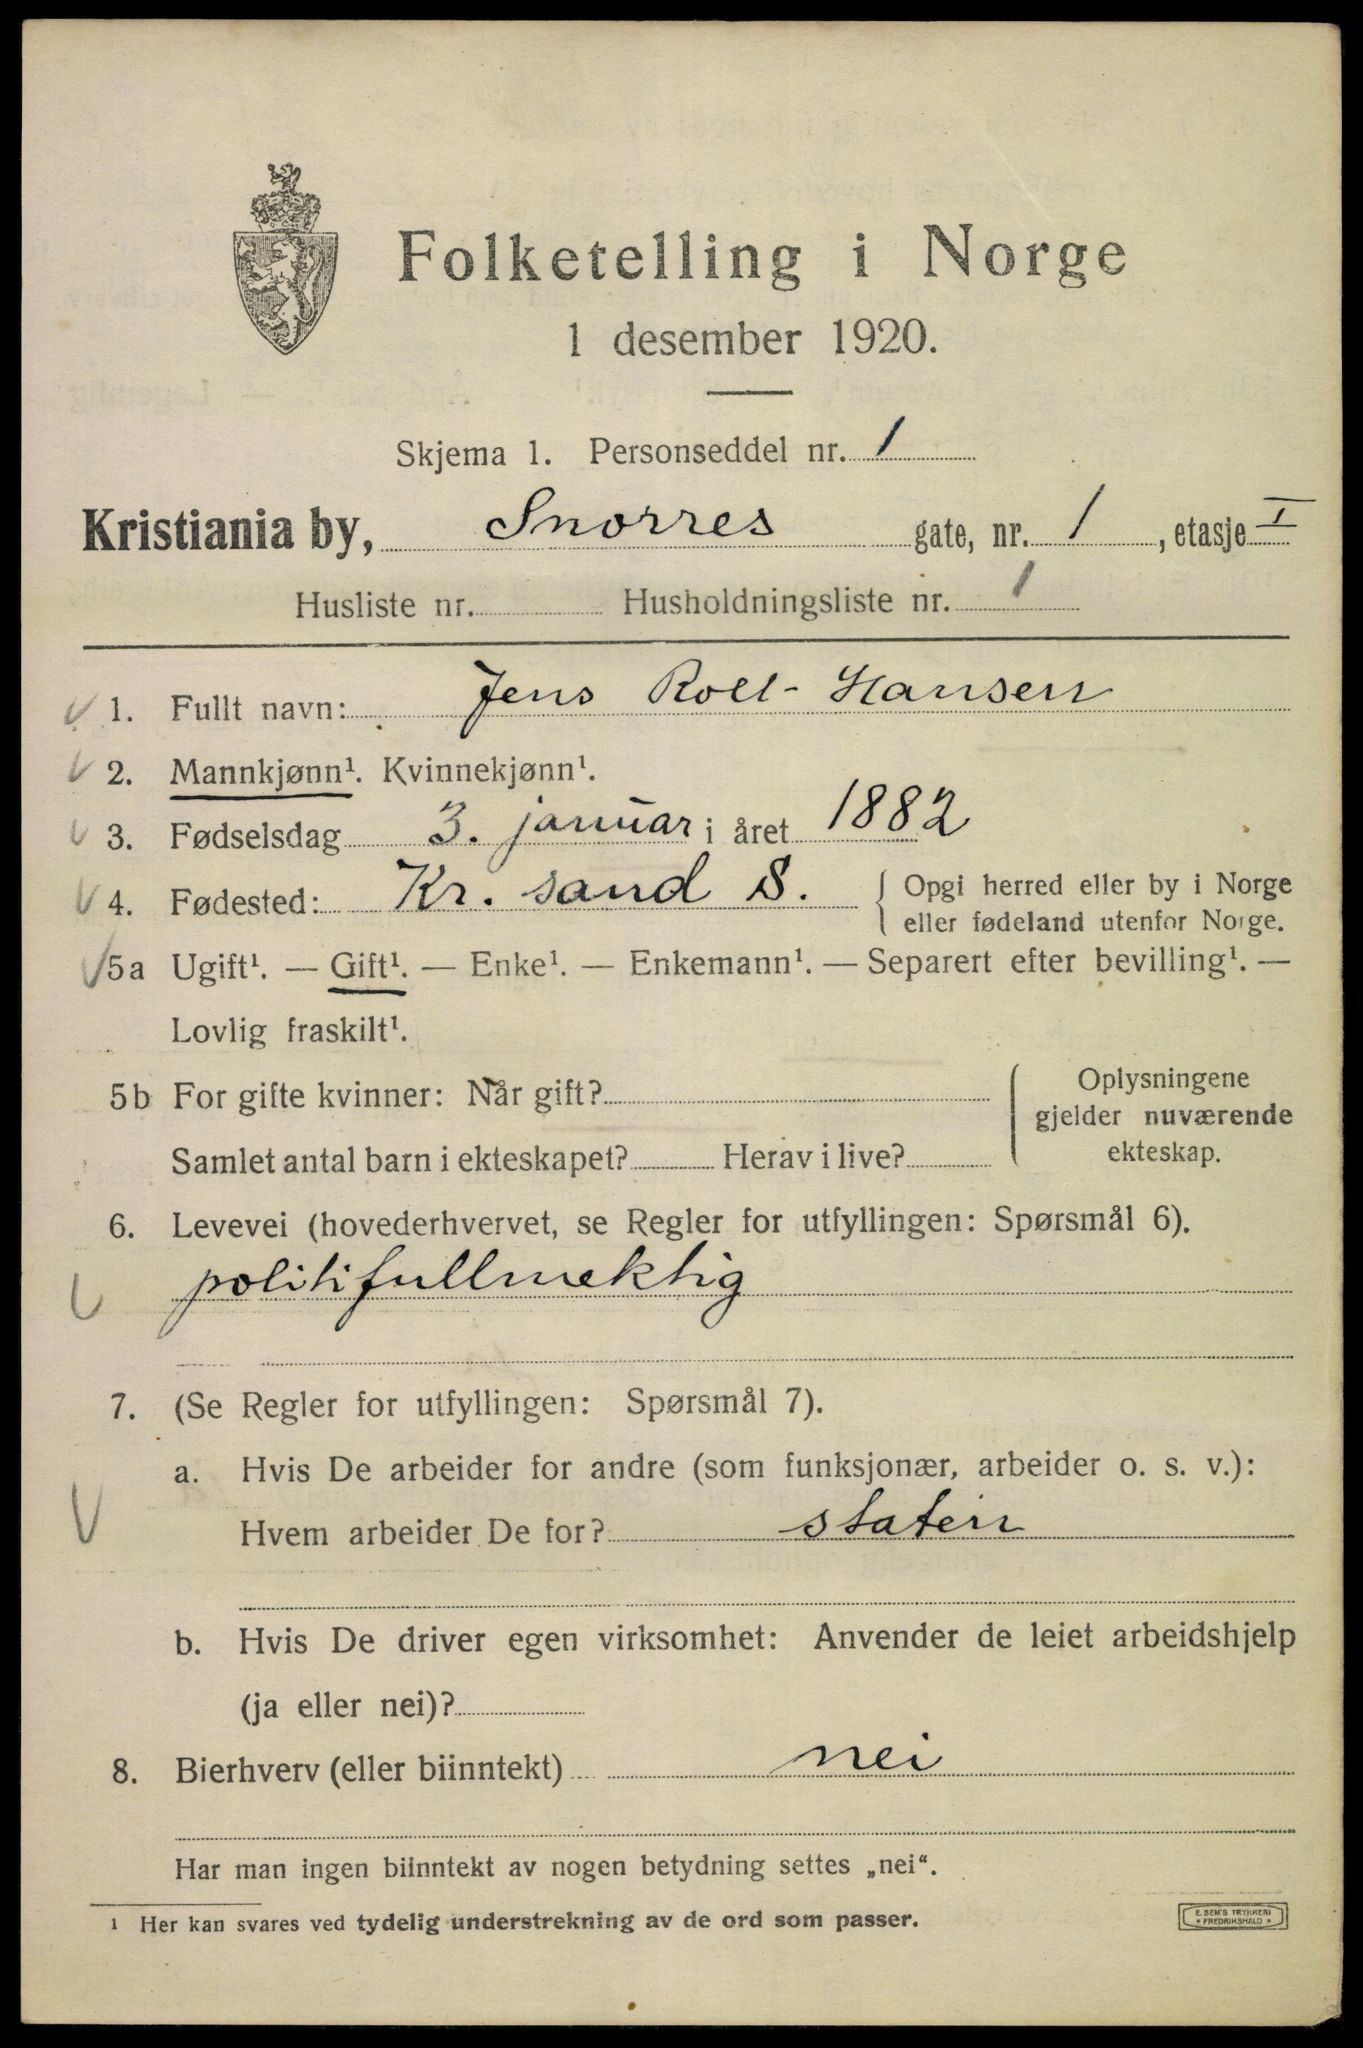 Folketelling i Norge
1 desember 1920.
Skjema 1. Personseddel nr. 1
Kristiania by, Snorres gate, nr. 1, etasje I
Husliste nr. Husholdningsliste nr. 1
1. Fullt navn: Jens Roll-Hansen
2. Mannkjønn¹. Kvinnekjønn¹.
3. Fødselsdag 3. januar i året 1882
4. Fødested: Kr.sand S. Opgi herred eller by i Norge
eller fødeland utenfor Norge.
5a Ugift¹. — Gift¹. — Enke¹. — Enkemann¹. — Separert efter bevilling¹. —
Lovlig fraskilt¹.
5b For gifte kvinner: Når gift? Oplysningene
gjelder nuværende
Samlet antal barn i ekteskapet? Herav i live? ekteskap.
6. Levevei (hovederhvervet, se Regler for utfyllingen: Spørsmål 6).
politifullmektig
7. (Se Regler for utfyllingen: Spørsmål 7).
a. Hvis De arbeider for andre (som funksjonær, arbeider o. s. v.):
Hvem arbeider De for? staten
b. Hvis De driver egen virksomhet: Anvender de leiet arbeidshjelp
(ja eller nei)?
8. Bierhverv (eller biinntekt) nei
Har man ingen biinntekt av nogen betydning settes „nei“.
¹ Her kan svares ved tydelig understrekning av de ord som passer.
E. SEM'S TRYKKERI
* FREDRIKSHALD *